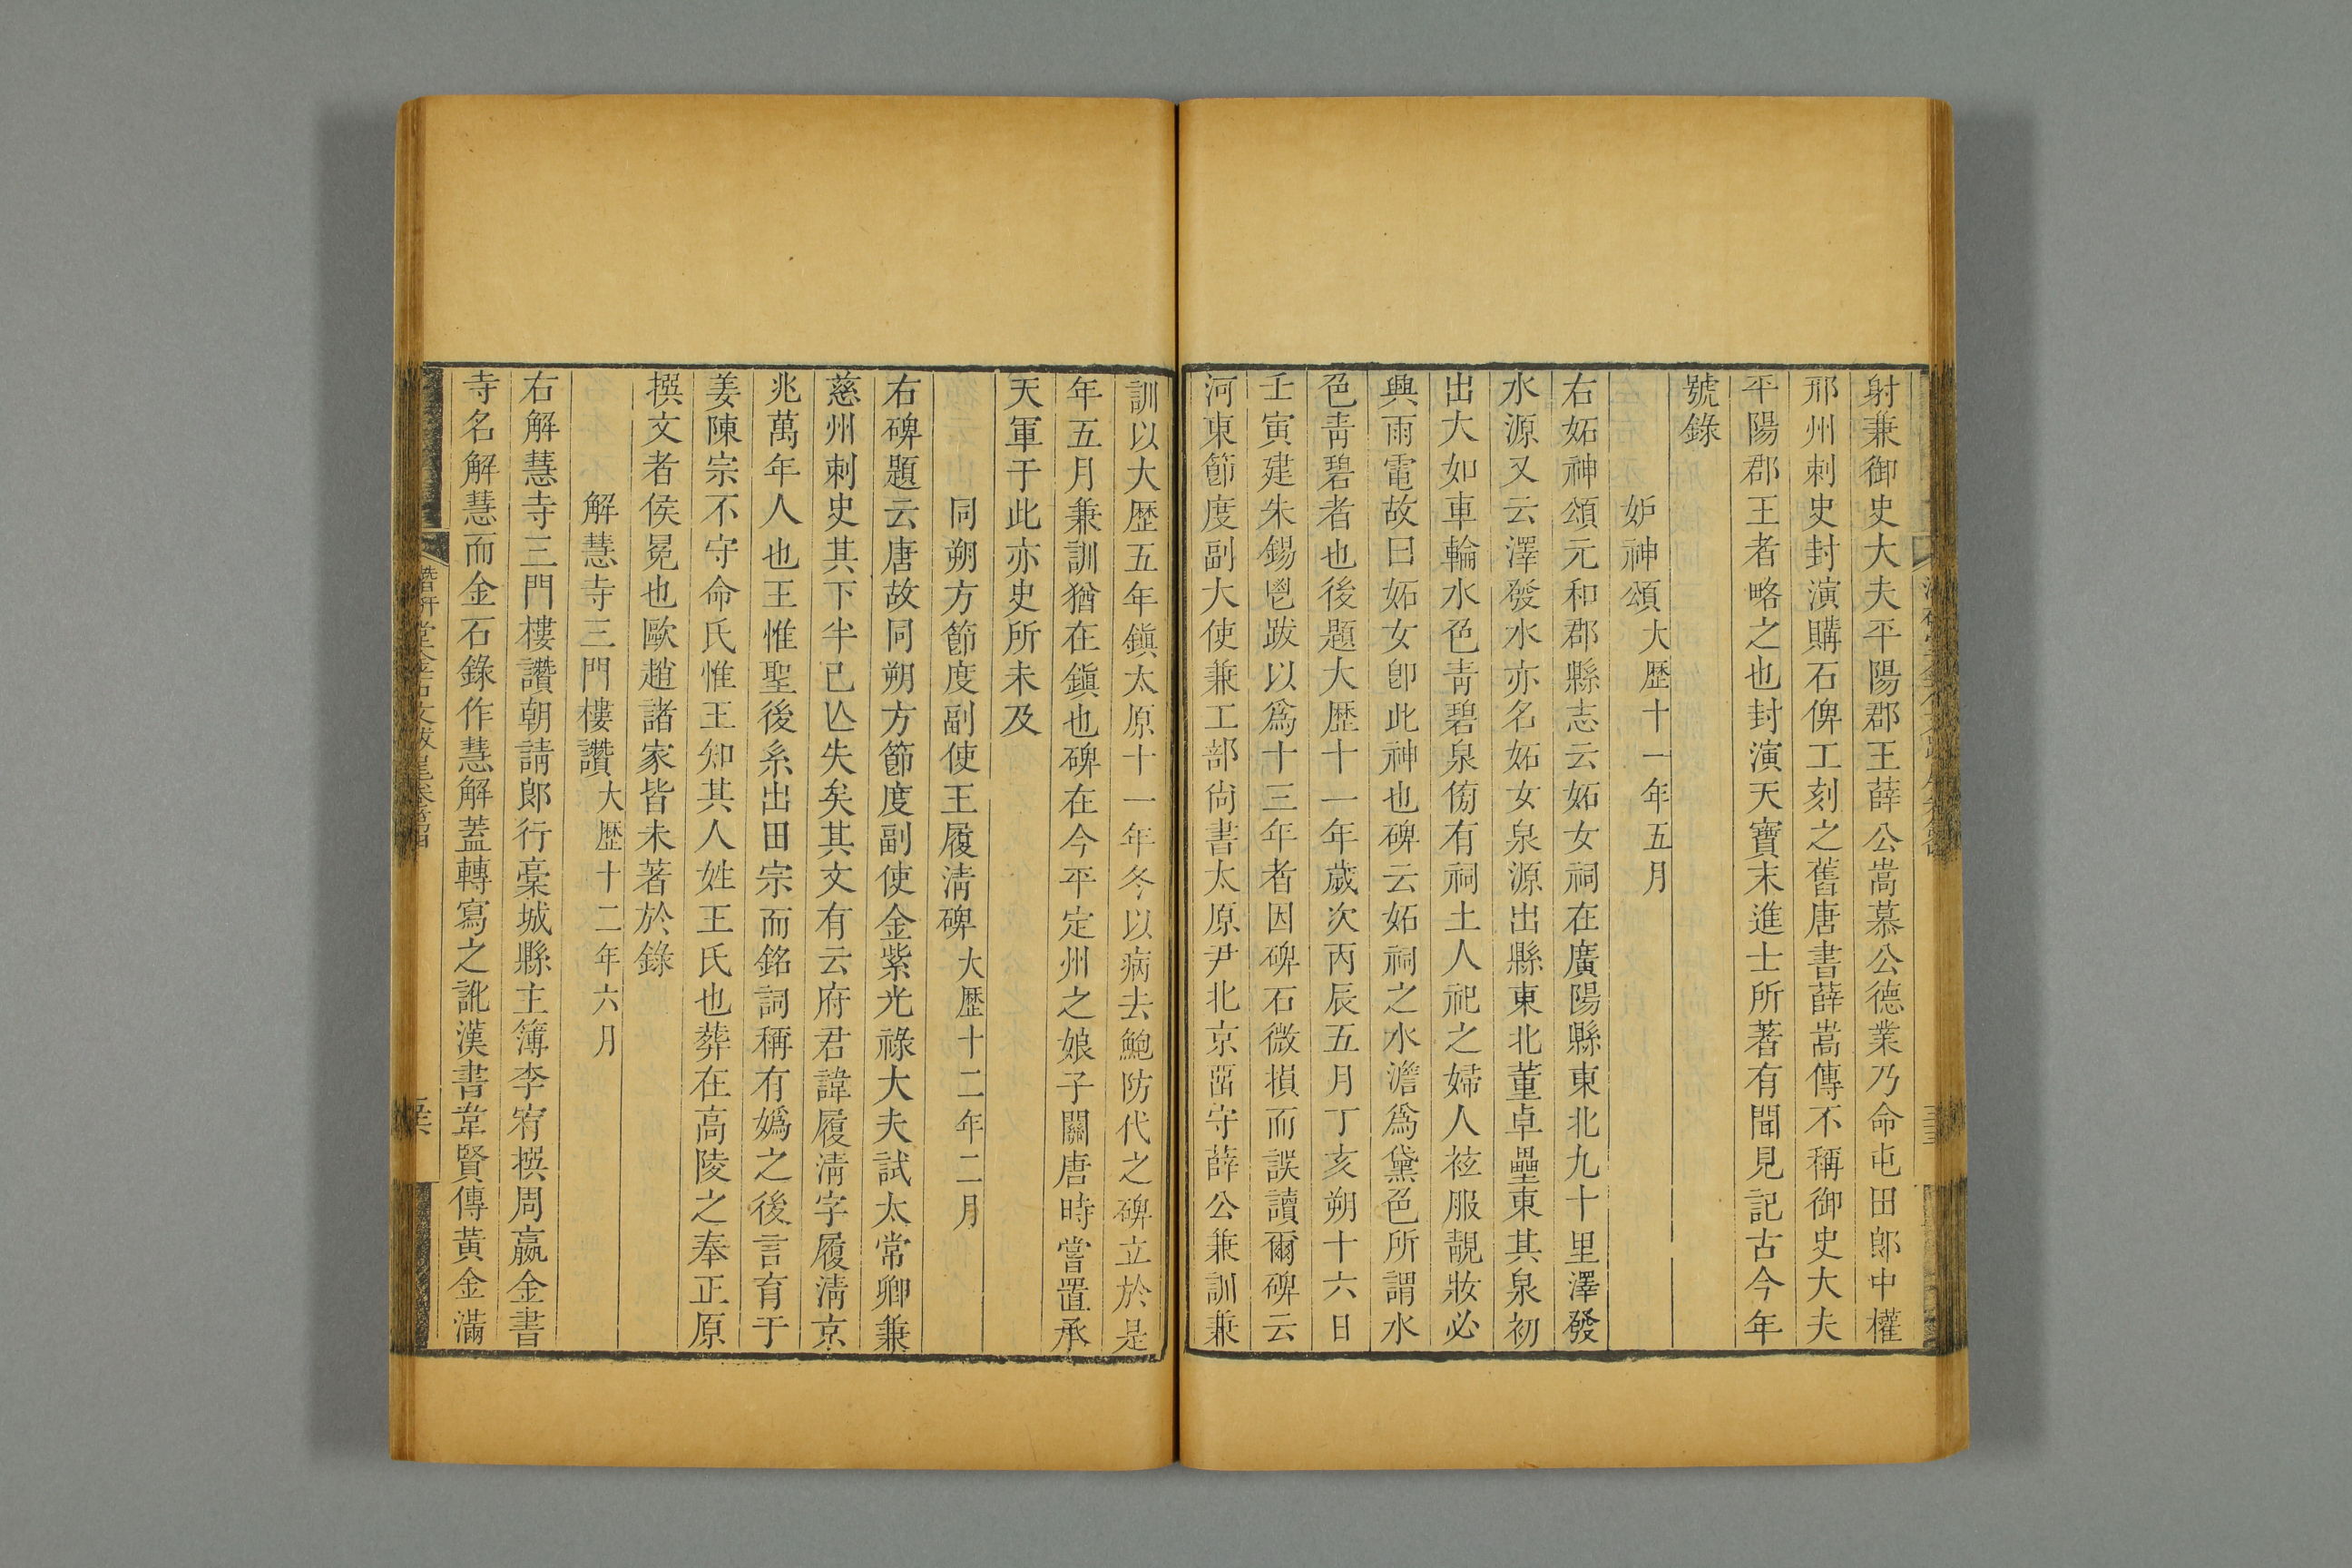 射兼御史大夫平陽郡王薛公嵩慕公德業乃命屯田郎中權
邢州刺史封演購石俾工刻之舊唐書薛嵩傳不稱御史大夫
平陽郡王者略之也封演天寶末進士所著有聞見記古今年
號錄
妒神頌大歷十一年五月
右妬神頌元和郡縣志云妬女祠在廣陽縣東北九十里澤發
水源又云澤發水亦名妬女泉源出縣東北董卓壘東其泉初
出大如車輪水色靑碧泉傍有祠土人祀之婦人袨服靚妝必
興雨電故曰妬女卽此神也碑云妬祠之水澹爲黛色所謂水
色靑碧者也後題大歷十一年歲次丙辰五月丁亥朔十六日
壬寅建朱錫鬯跋以爲十三年者因碑石微損而誤讀爾碑云
河東節度副大使兼工部尙書太原尹北京畱守薛公兼訓兼
訓以大歷五年鎭太原十一年冬以病去鮑防代之碑立於是
年五月兼訓猶在鎭也碑在今平定州之娘子關唐時嘗置承
天軍于此亦史所未及
同朔方節度副使王履淸碑大歷十二年二月
右碑題云唐故同朔方節度副使金紫光祿大夫試太常卿兼
慈州刺史其下半已亾失矣其文有云府君諱履淸字履淸京
兆萬年人也王惟聖後系出田宗而銘詞稱有嬀之後言育于
姜陳宗不守命氏惟王知其人姓王氏也葬在高陵之奉正原
撰文者侯冕也歐趙諸家皆未著於錄
解慧寺三門樓讚大歷十二年六月
右解慧寺三門樓讚朝請郎行稾城縣主簿李宥撰周嬴金書
寺名解慧而金石錄作慧解蓋轉寫之訛漢書韋賢傳黃金滿
潛研堂金石文跋尾卷第